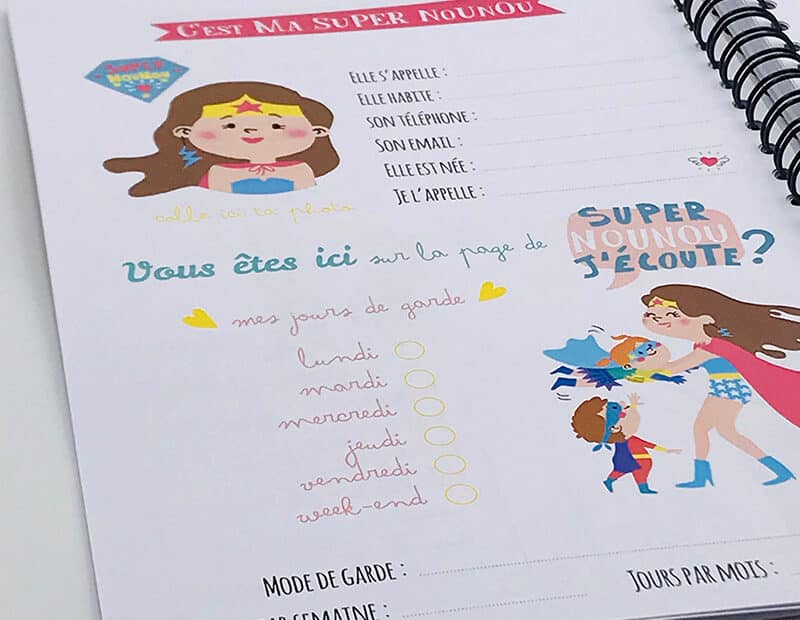 C'EST MA SUPER NOUNOU
SUPER
NOUNOU
ELLE S'APPELLE :
ELLE HABITE :
SON TÉLÉPHONE :
SON EMAIL :
ELLE EST NÉE :
JE L'APPELLE :
colle ici ta photo
Vous êtes ici sur la page de
SUPER
NOUNOU
J'ÉCOUTE ?
mes jours de garde
lundi
mardi
mercredi
jeudi
vendredi
week-end
MODE DE GARDE :
JOURS PAR MOIS :
SEMAINE :